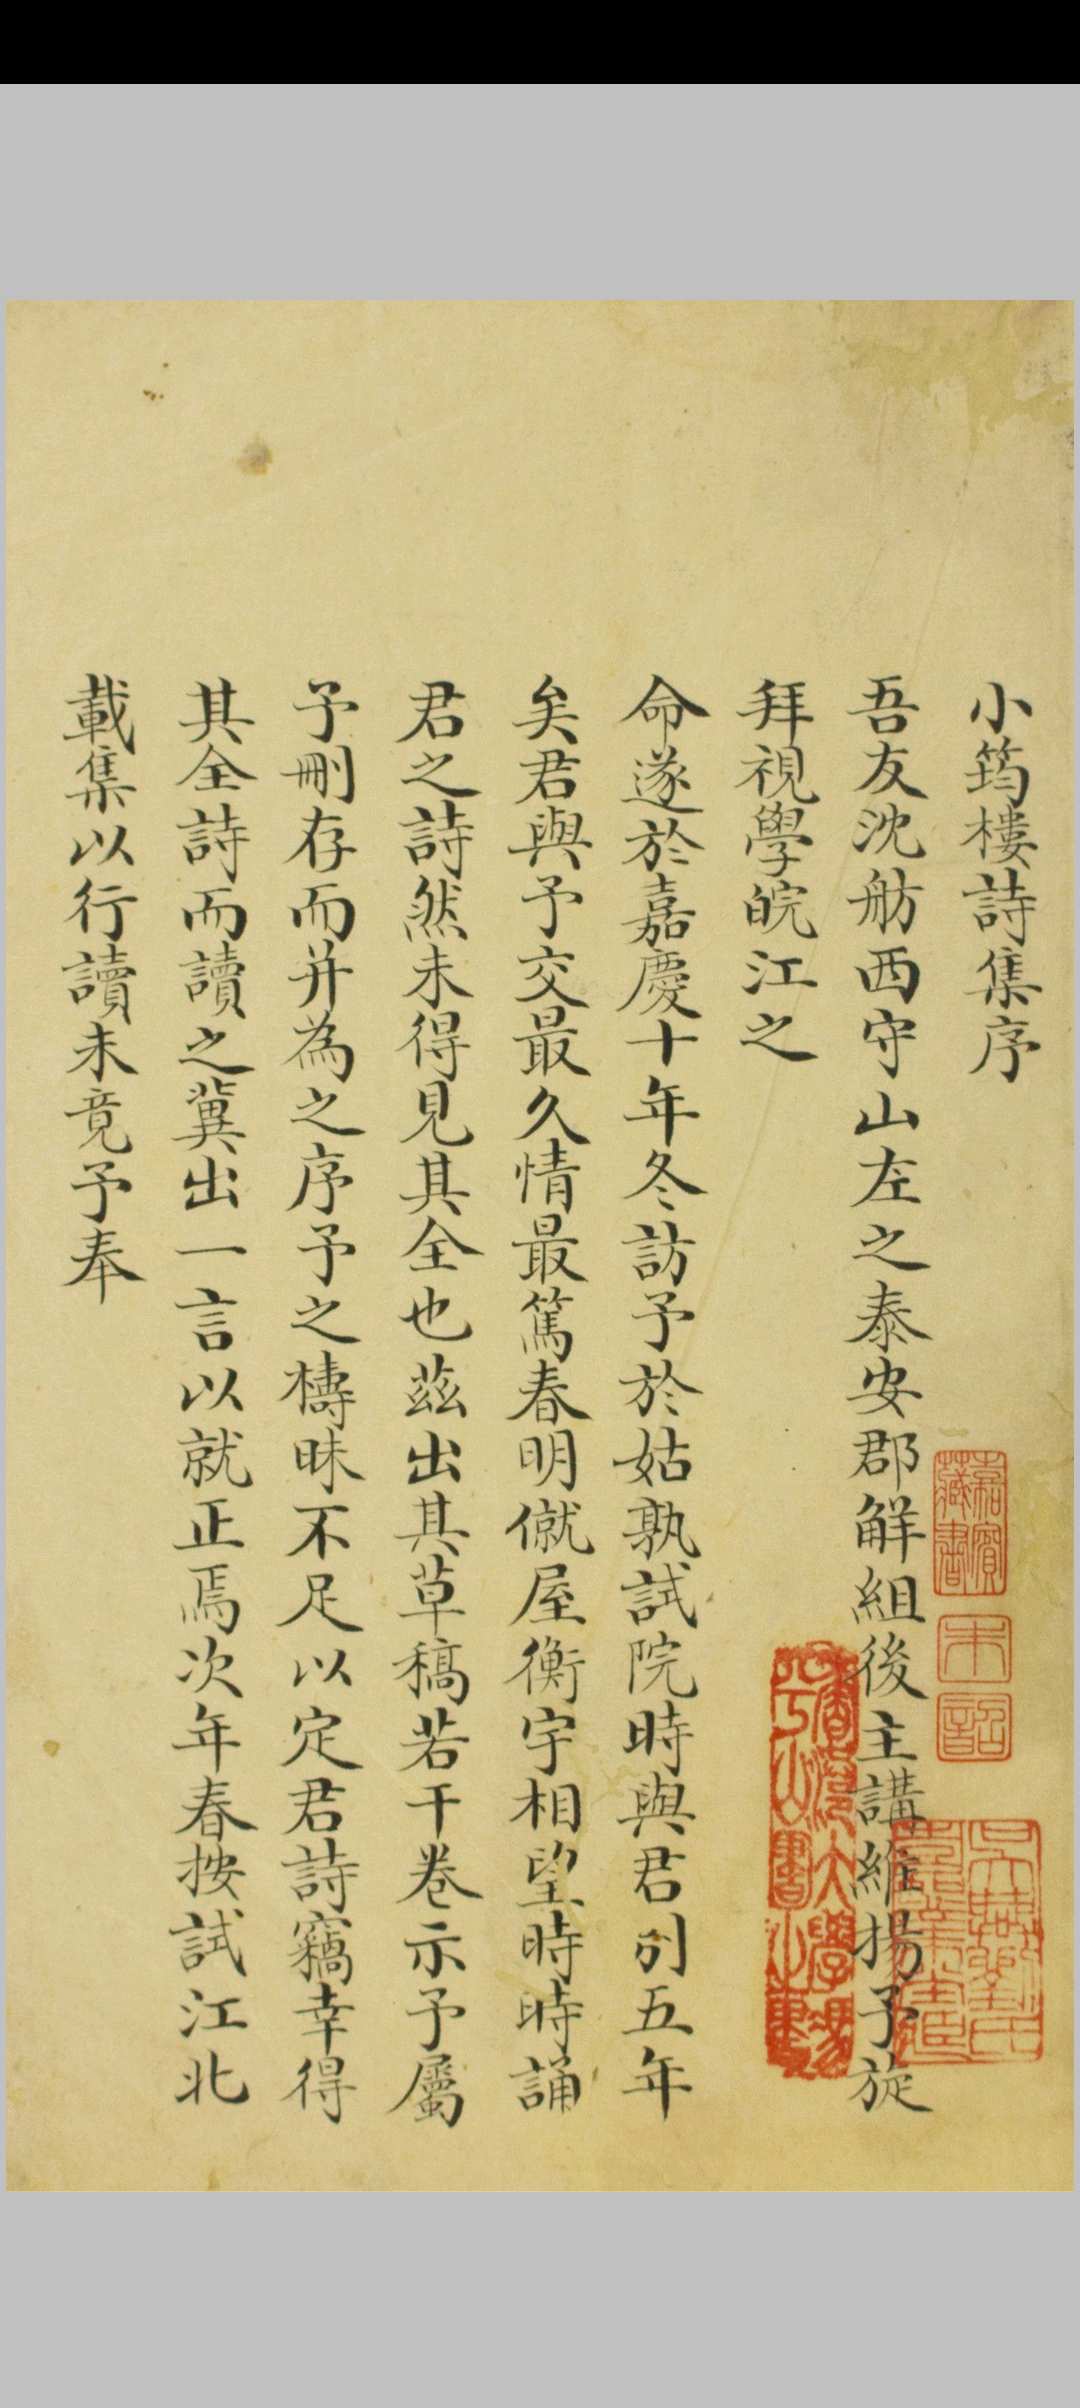 小筠樓詩集序
吾友沈舫西守山左之泰安郡解組後主講維揚予旋
拜視學皖江之
命遂於嘉慶十年冬訪予於姑孰試院時與君別五年
矣君與予交最久情最篤春明僦屋衡宇相望時時誦
君之詩然未得見其全也茲出其草稿若干卷示予屬
予刪存而并為之序予之檮昧不足以定君詩竊幸得
其全詩而讀之冀出一言以就正焉次年春按試江北
載集以行讀未竟予奉
嘉賓
藏書